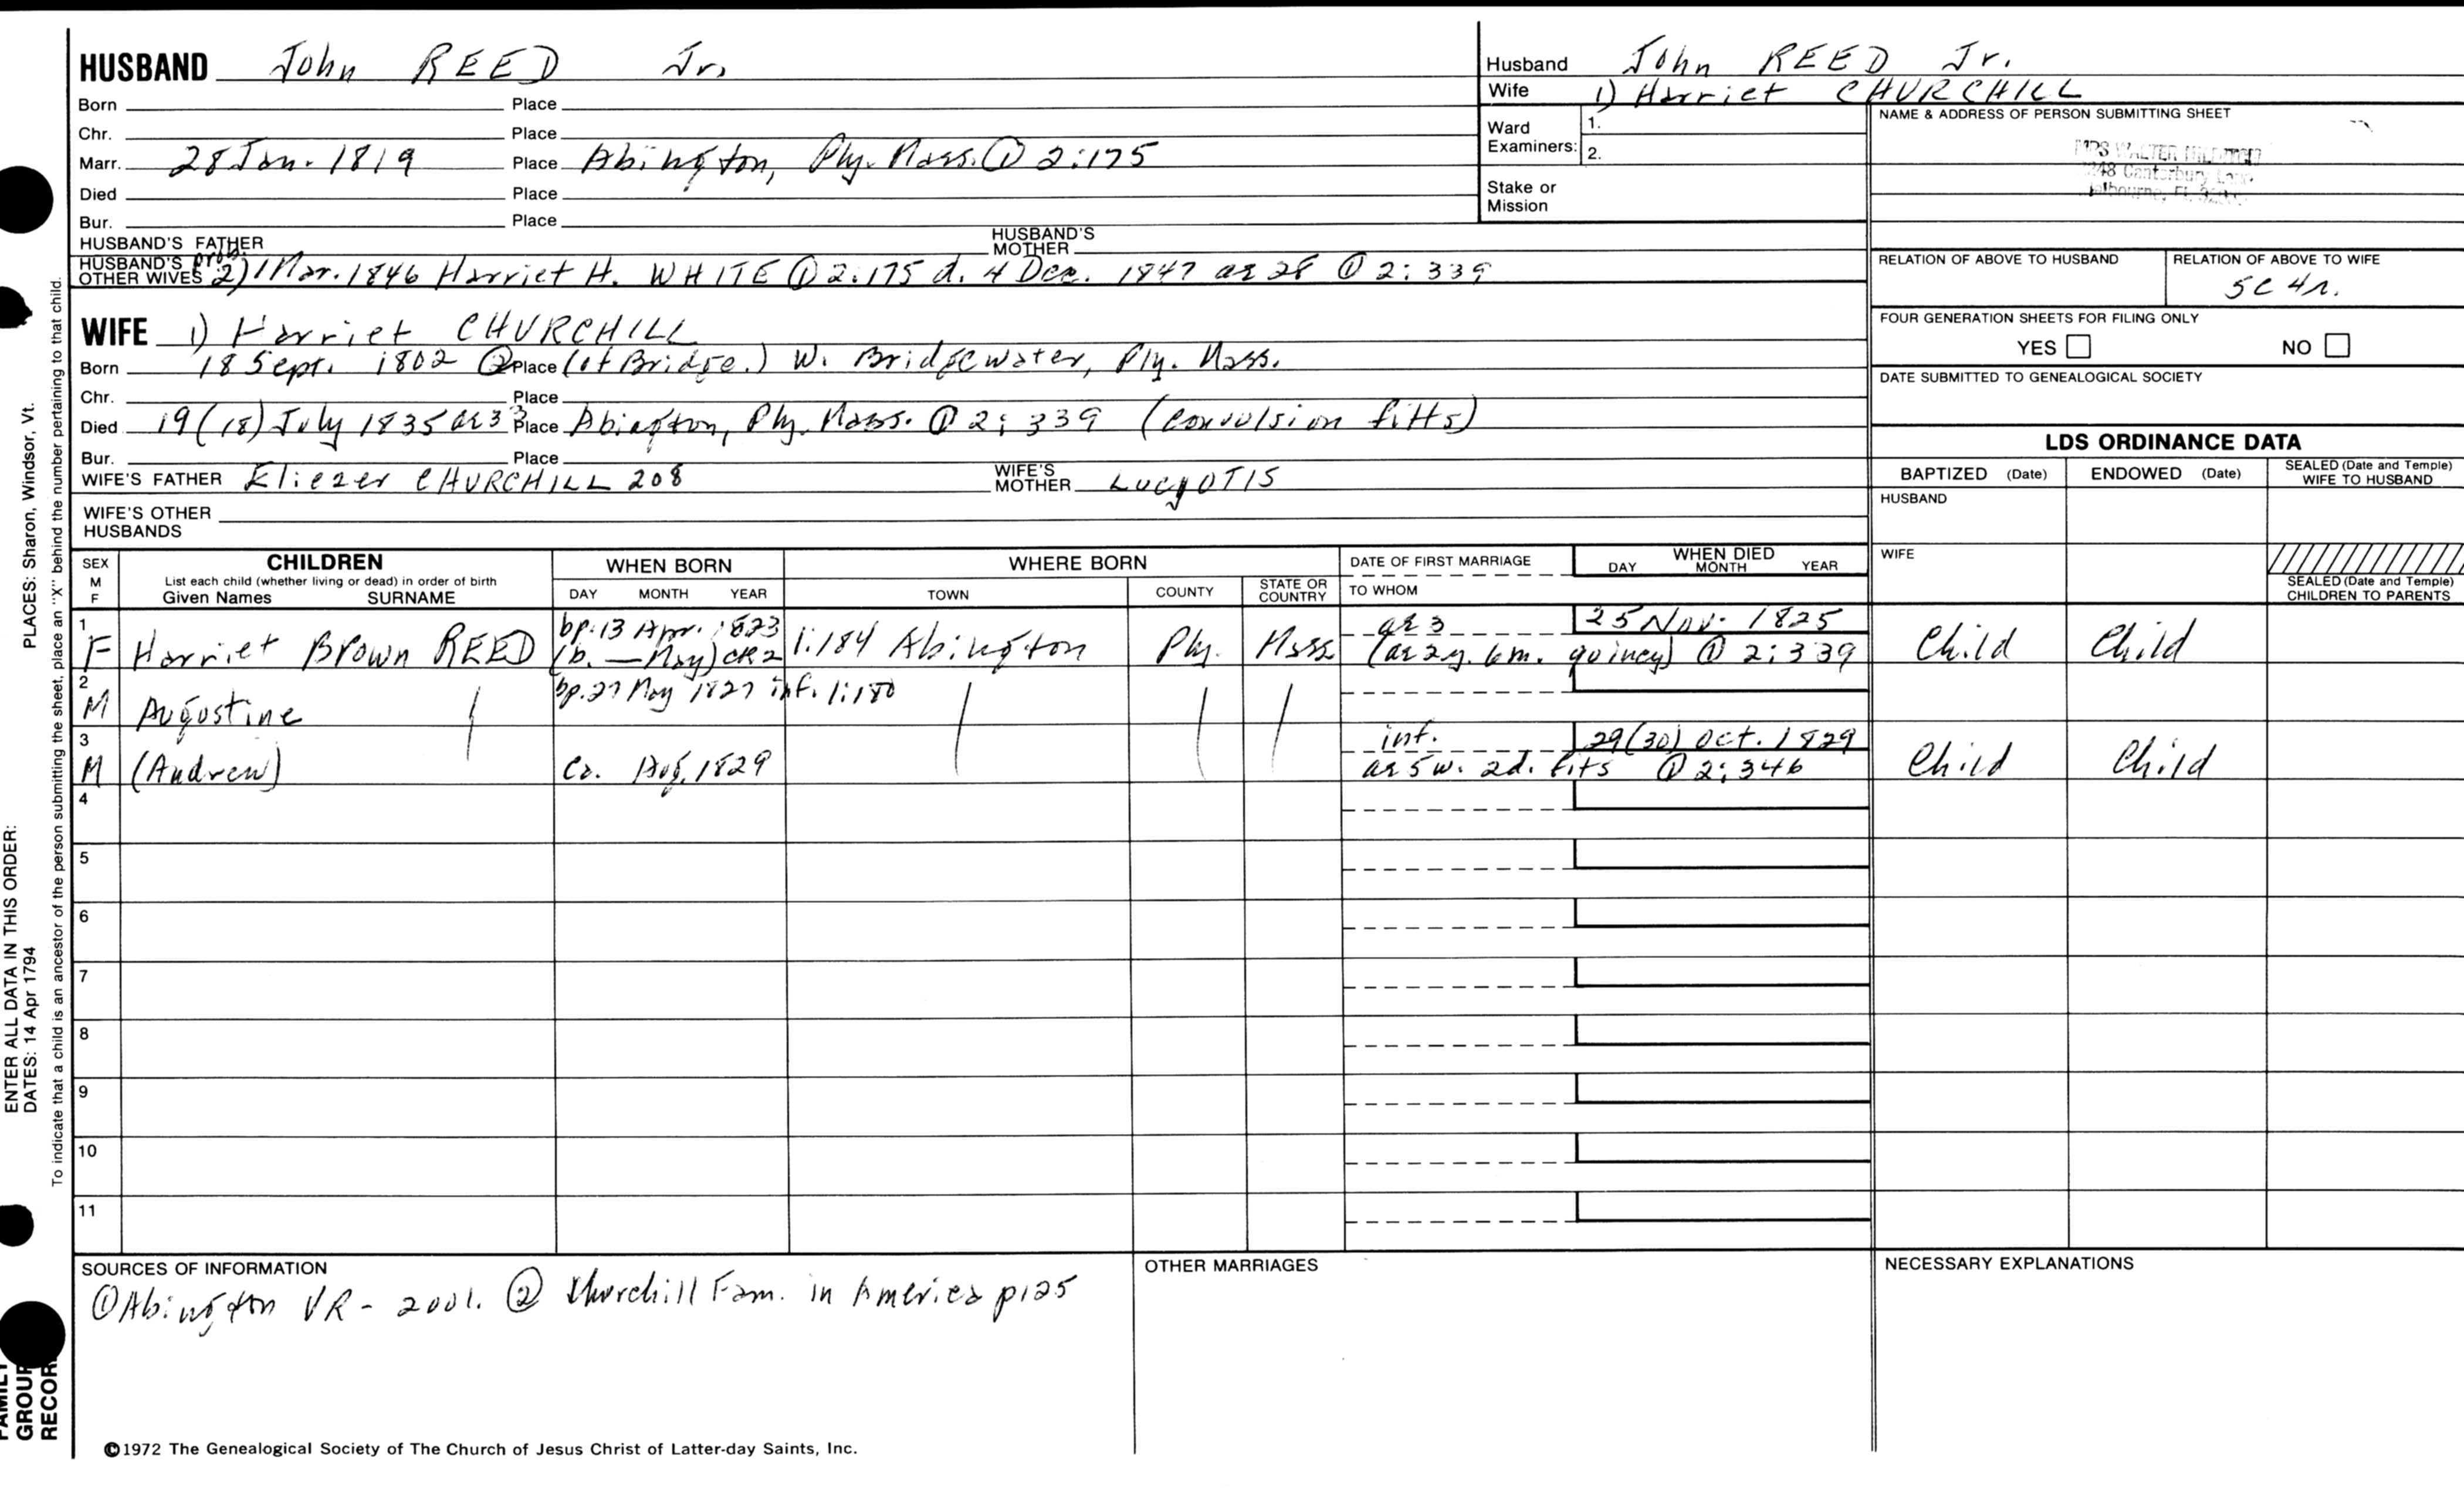 HUSBAND John REED Jr.
Born Place
Chr. Place
Marr. 28 Jan. 1819 Place Abington, Ply. Mass. ① 2:175
Died Place
Bur. Place
HUSBAND'S FATHER HUSBAND'S MOTHER
HUSBAND'S OTHER WIVES prob. 2) 1 Mar. 1846 Harriet H. WHITE ① 2:175 d. 4 Dec. 1847 ae 28 ① 2:339
WIFE 1) Harriet CHURCHILL
Born 18 Sept. 1802 ② Place (of Bridge.) W. Bridgewater, Ply. Mass.
Chr. Place
Died 19 (18) July 1835 ae 33 Place Abington, Ply. Mass. ① 2:339 (convulsion fitts)
Bur. Place
WIFE'S FATHER Eliezer CHURCHILL 208 WIFE'S MOTHER Lucy OTIS
WIFE'S OTHER HUSBANDS
Husband John REED Jr.
Wife 1) Harriet CHURCHILL
Ward Examiners: 1.
2.
Stake or Mission
NAME & ADDRESS OF PERSON SUBMITTING SHEET
MRS WALTER
Canterbury
RELATION OF ABOVE TO HUSBAND RELATION OF ABOVE TO WIFE
5C 4r.
FOUR GENERATION SHEETS FOR FILING ONLY
YES NO
DATE SUBMITTED TO GENEALOGICAL SOCIETY
LDS ORDINANCE DATA
BAPTIZED (Date) ENDOWED (Date) SEALED (Date and Temple) WIFE TO HUSBAND
HUSBAND
WIFE
SEALED (Date and Temple) CHILDREN TO PARENTS
SEX M F CHILDREN WHEN BORN WHERE BORN DATE OF FIRST MARRIAGE WHEN DIED
List each child (whether living or dead) in order of birth
Given Names SURNAME DAY MONTH YEAR TOWN COUNTY STATE OR COUNTRY TO WHOM DAY MONTH YEAR
1 bp. 13 Apr. 1823 ae 3 25 Nov. 1825
F Harriet Brown REED (b. — May) CR2 1:184 Abington Ply. Mass (ae 2y. 6m. quincy) ① 2:339 Child Child
2 bp. 27 May 1827 inf. 1:180
M Augustine
3 inf. 29 (30) Oct. 1829
M (Andrew) Ca. Aug. 1829 ae 5 w. 2d. fits ① 2:346 Child Child
4
5
6
7
8
9
10
11
SOURCES OF INFORMATION OTHER MARRIAGES NECESSARY EXPLANATIONS
① Abington VR - 2 vol. ② Churchill Fam. in America p125
©1972 The Genealogical Society of The Church of Jesus Christ of Latter-day Saints, Inc.
ENTER ALL DATA IN THIS ORDER:
DATES: 14 Apr 1794 PLACES: Sharon, Windsor, Vt.
To indicate that a child is an ancestor of the person submitting the sheet, place an "X" behind the number pertaining to that child.
FAMILY GROUP RECORD